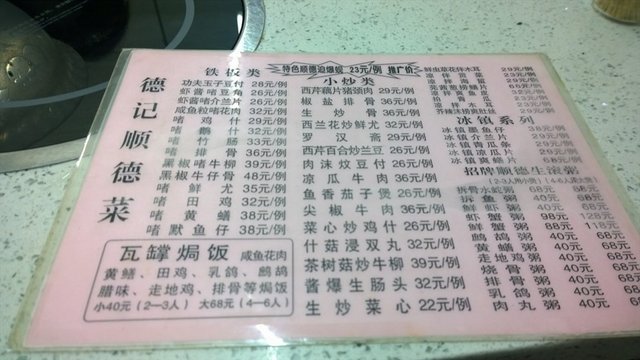 德记顺德菜
铁板类
功夫玉子豆付 28元/例
虾酱啫豆角 26元/例
虾酱啫介兰片 26元/例
咸鱼粒啫花肉 32元/例
啫鸡什 29元/例
啫鹅什 32元/例
啫竹肠 33元/例
啫排骨 36元/例
黑椒啫牛柳 39元/例
黑椒牛仔骨 48元/例
啫鲜尤 35元/例
啫田鸡 32元/例
啫黄鳝 38元/例
啫默鱼仔 38元/例
瓦罉焗饭 咸鱼花肉
黄鳝、田鸡、乳鸽、鹧鸪
腊味、走地鸡、排骨等焗饭
小40元（2—3人） 大68元（4—6人）
特色顺德迫爆蚬 23元/例 推广价
小炒类
西芹藕片猪颈肉 29元/例
椒盐排骨 36元/例
生炒骨 36元/例
西兰花炒鲜尤 32元/例
罗汉斋 29元/例
西芹百合炒兰豆 26元/例
肉沫炆豆付 26元/例
凉瓜牛肉 36元/例
鱼香茄子煲 26元/例
尖椒牛肉 36元/例
菜心炒鸡什 26元/例
什菇浸双丸 32元/例
茶树菇炒牛柳 39元/例
酱爆生肠头 32元/例
生炒菜心 22元/例
鲜虫草花伴木耳 29元/例
凉伴青瓜 23元/例
29元/例
冰镇系列
冰镇墨鱼仔 38元/例
冰镇介兰片 29元/例
冰镇青瓜条 29元/例
冰镇凉瓜片 29元/例
冰镇爽鳝片 68元/例
招牌顺德生滚粥
(2-3人用小煲) (4-6人用大煲)
拆骨水蛇粥 68元 98元
拆鱼粥 40元 68元
鲜鱿粥 40元 68元
虾蟹粥 98元 128元
虾粥 68元 118元
鹧鸪粥 40元 68元
黄鳝粥 40元 68元
走地鸡粥 40元 68元
烧骨粥 40元 68元
排骨粥 40元 68元
乳鸽粥 40元 68元
肉丸粥 40元 68元